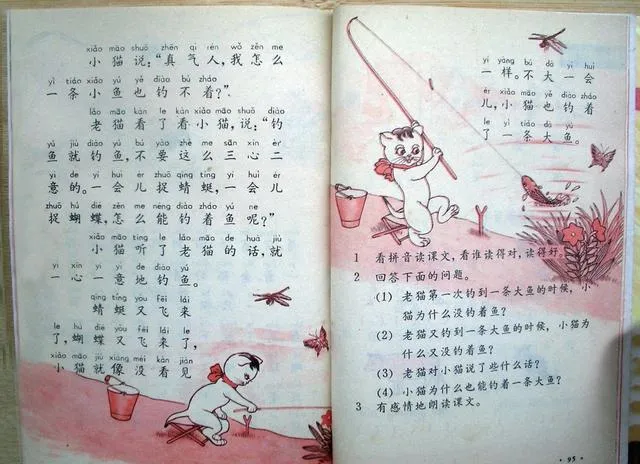 xiǎo māo shuō zhēn qì rén wǒ zěn me
小猫说:“真气人,我怎么
yì tiáo xiǎo yú yě diào bù zháo
一条小鱼也钓不着?”
lǎo māo kàn le kàn xiǎo māo shuō diào
老猫看了看小猫,说:“钓
yú jiù diào yú bú yào zhè me sān xīn èr
鱼就钓鱼,不要这么三心二
yì de yí huì ér zhuō qīng tíng yí huì ér
意的。一会儿捉蜻蜓,一会儿
zhuō hú dié zěn me néng diào zháo yú ne
捉蝴蝶,怎么能钓着鱼呢?”
xiǎo māo tīng le lǎo māo de huà jiù
小猫听了老猫的话,就
yì xīn yí yì de diào yú
一心一意地钓鱼。
qīng tíng yòu fēi lái
蜻蜓又飞来
le hú dié yòu fēi lái le
了,蝴蝶又飞来了,
xiǎo māo jiù xiàng méi kàn jiàn
小猫就像没看见
yí yàng bú dà yí huì
一样。不大一会
ér xiǎo māo yě diào zháo
儿,小猫也钓着
le yì tiáo dà yú
了一条大鱼。
1 看拼音读课文,看谁读得对,读得好。
2 回答下面的问题。
(1) 老猫第一次钓到一条大鱼的时候,小
猫为什么没钓着鱼?
(2) 老猫又钓到一条大鱼的时候,小猫为
什么又没钓着鱼?
(3) 老猫对小猫说了些什么话?
(4) 小猫为什么也能钓着一条大鱼?
3 有感情地朗读课文。
· 95 ·